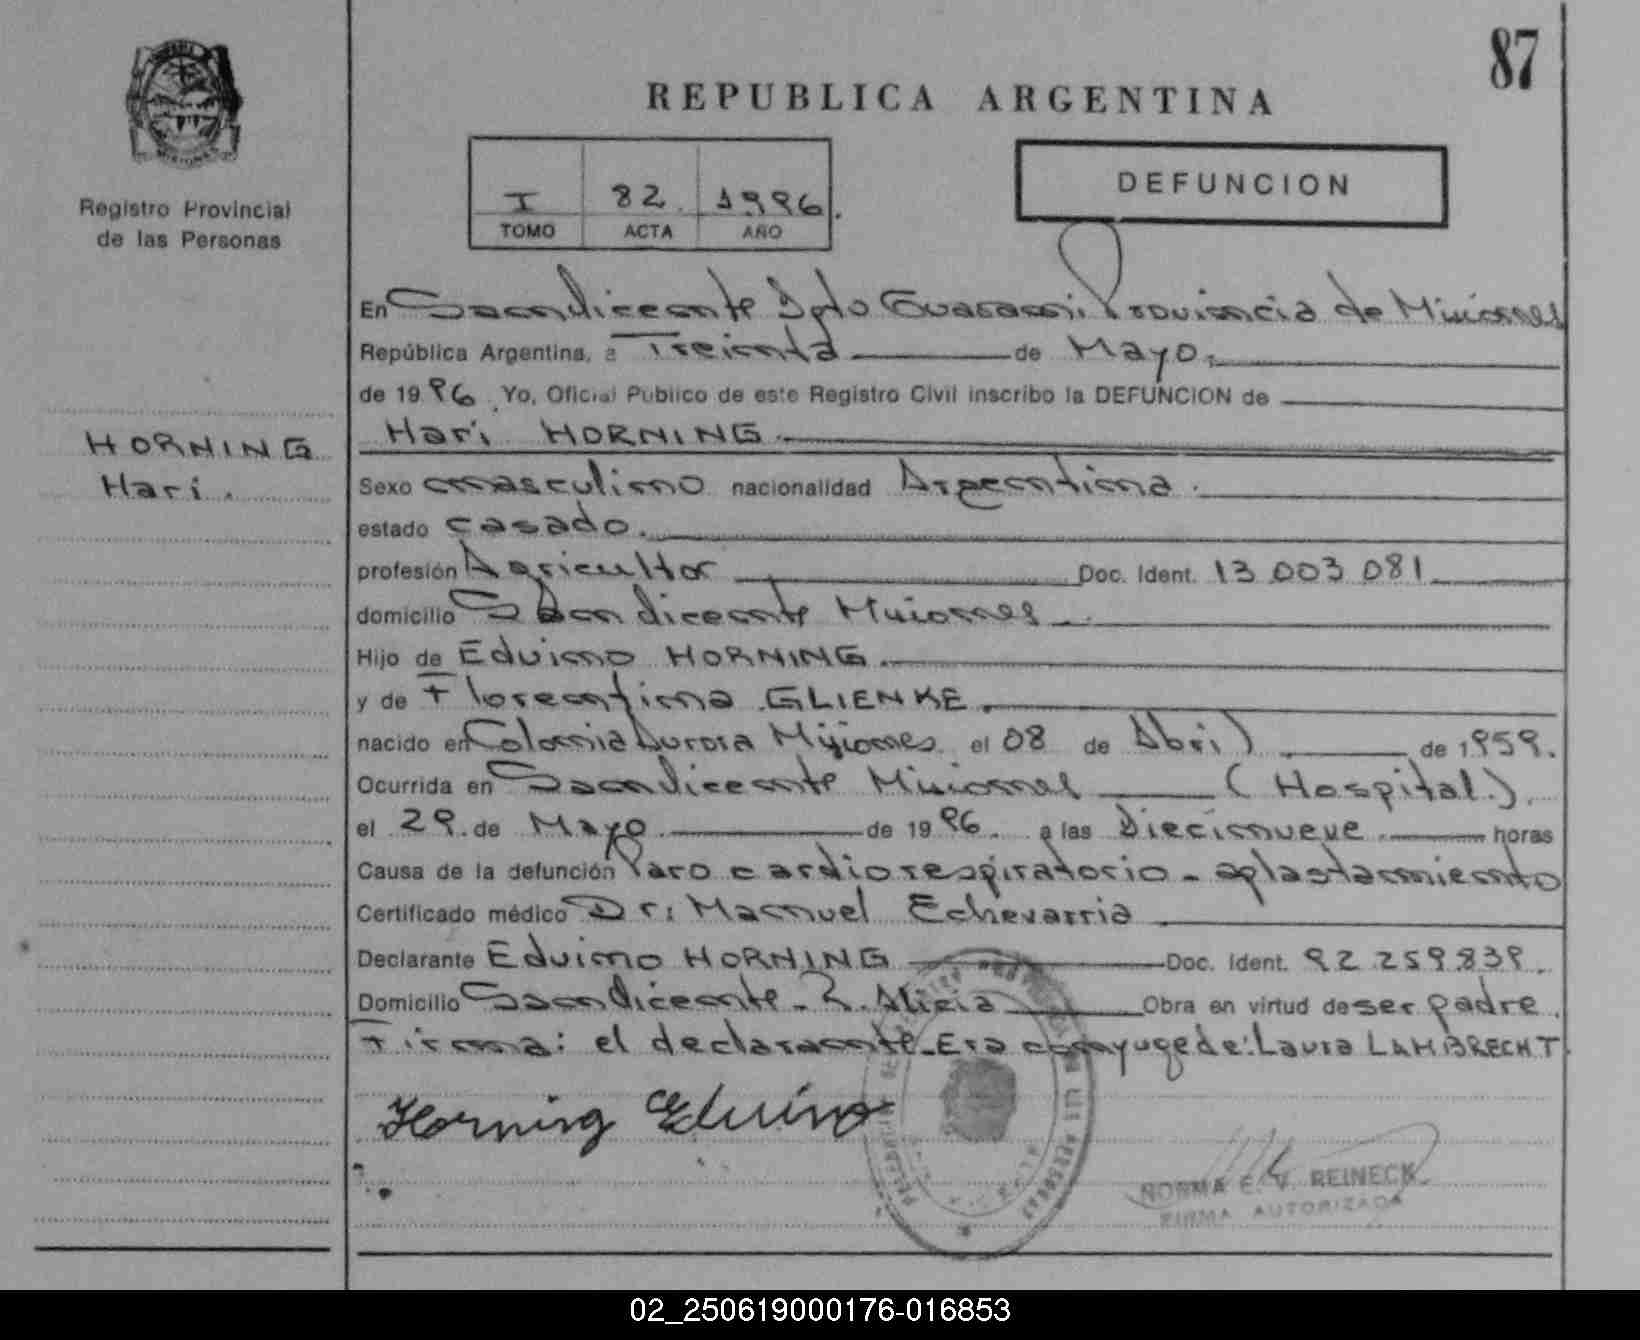 87
REPUBLICA ARGENTINA
I 82. 1996.
TOMO ACTA AÑO
DEFUNCION
Registro Provincial
de las Personas
HORNING
Hari.
En Sanvicente Dpto Guarani Provincia de Misiones
República Argentina, a Treinta de Mayo.
de 1996. Yo, Oficial Publico de este Registro Civil inscribo la DEFUNCION de
Hari HORNING.
Sexo masculino nacionalidad Argentina.
estado casado.
profesión Agricultor Doc. Ident. 13 003 081
domicilio Sanvicente Misiones
Hijo de Eduino HORNING.
y de Florentina GLIENKE.
nacido en Colonia Aurora Misiones el 08 de Abril de 1959.
Ocurrida en Sanvicente Misiones (Hospital).
el 29. de Mayo de 1996. a las Diecinueve horas
Causa de la defunción Paro cardiorespiratorio - aplastamiento
Certificado médico Dr: Manuel Echevarria
Declarante Eduino HORNING Doc. Ident. 92 259.839.
Domicilio Sanvicente - Alicia Obra en virtud de ser padre.
Firma: el declarante - Era conyuge de: Laura LAMBRECHT.
Horning Eduino
NORMA E. V. REINECK
FIRMA AUTORIZADA
02_250619000176-016853